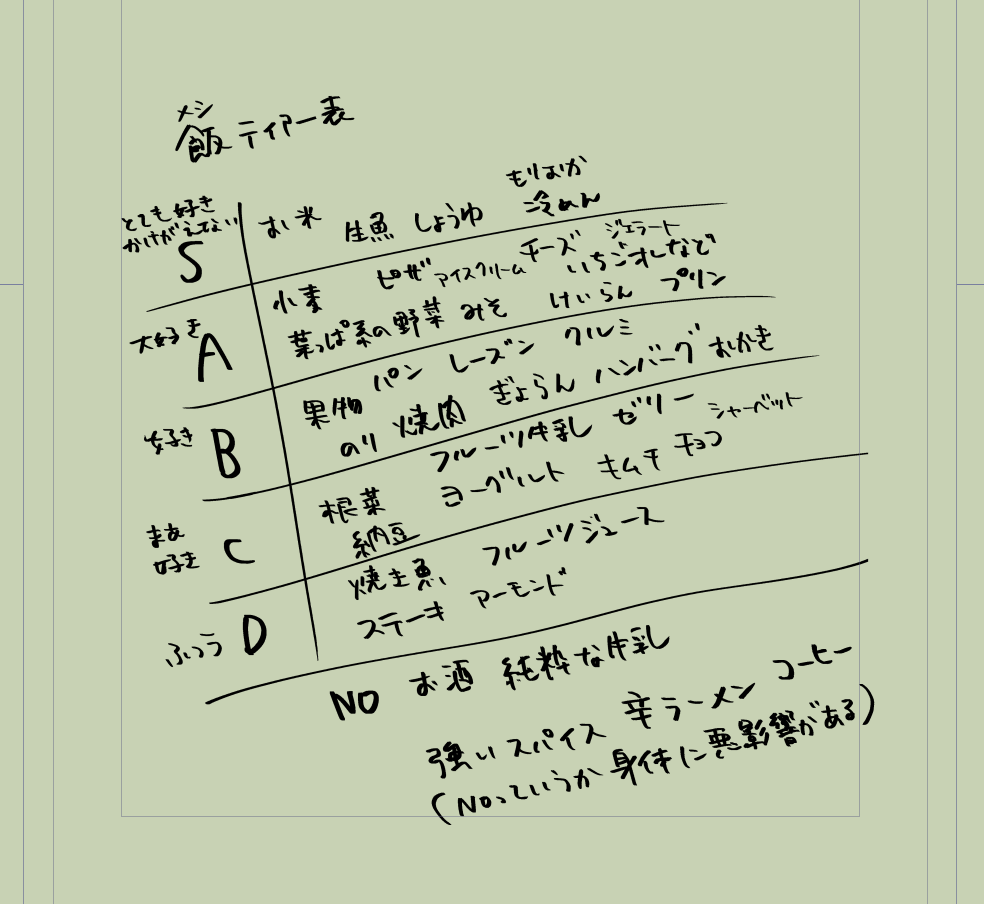 メシ
飯 ティアー表
とても好き
かけがえてない
S
お米 生魚 しょうゆ
もりおか
冷めん
大好き
A
小麦 ピザ アイスクリーム チーズ ジェラート
いちごオレなど
葉っぱ系の野菜 みそ けいらん プリン
好き
B
果物 パン レーズン クルミ
のり 焼肉 ぎょらん ハンバーグ おかき
まあ
好き
C
フルーツ牛乳 ゼリー シャーベット
根菜 ヨーグルト キムチ チョコ
納豆
ふつう
D
焼き魚 フルーツジュース
ステーキ アーモンド
NO お酒 純粋な牛乳
強いスパイス 辛ラーメン コーヒー
(NOっていうか身体に悪影響がある)